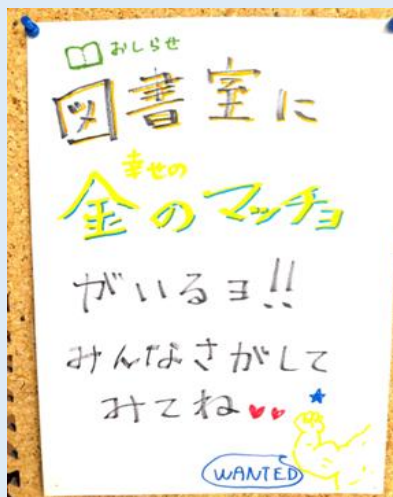 おしらせ
図書室に
幸せの
金のマッチョ
がいるヨ!!
みんなさがして
みてね
WANTED